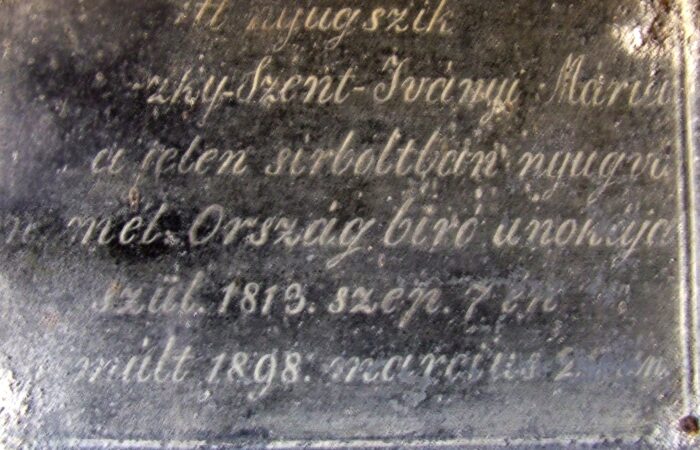 itt nyugszik
zky-Szent-Iványi Mária
a jelen sirboltban nyugvó
mél. Ország biró unokája
szül. 1813. szep. 7 én
múlt 1898. március